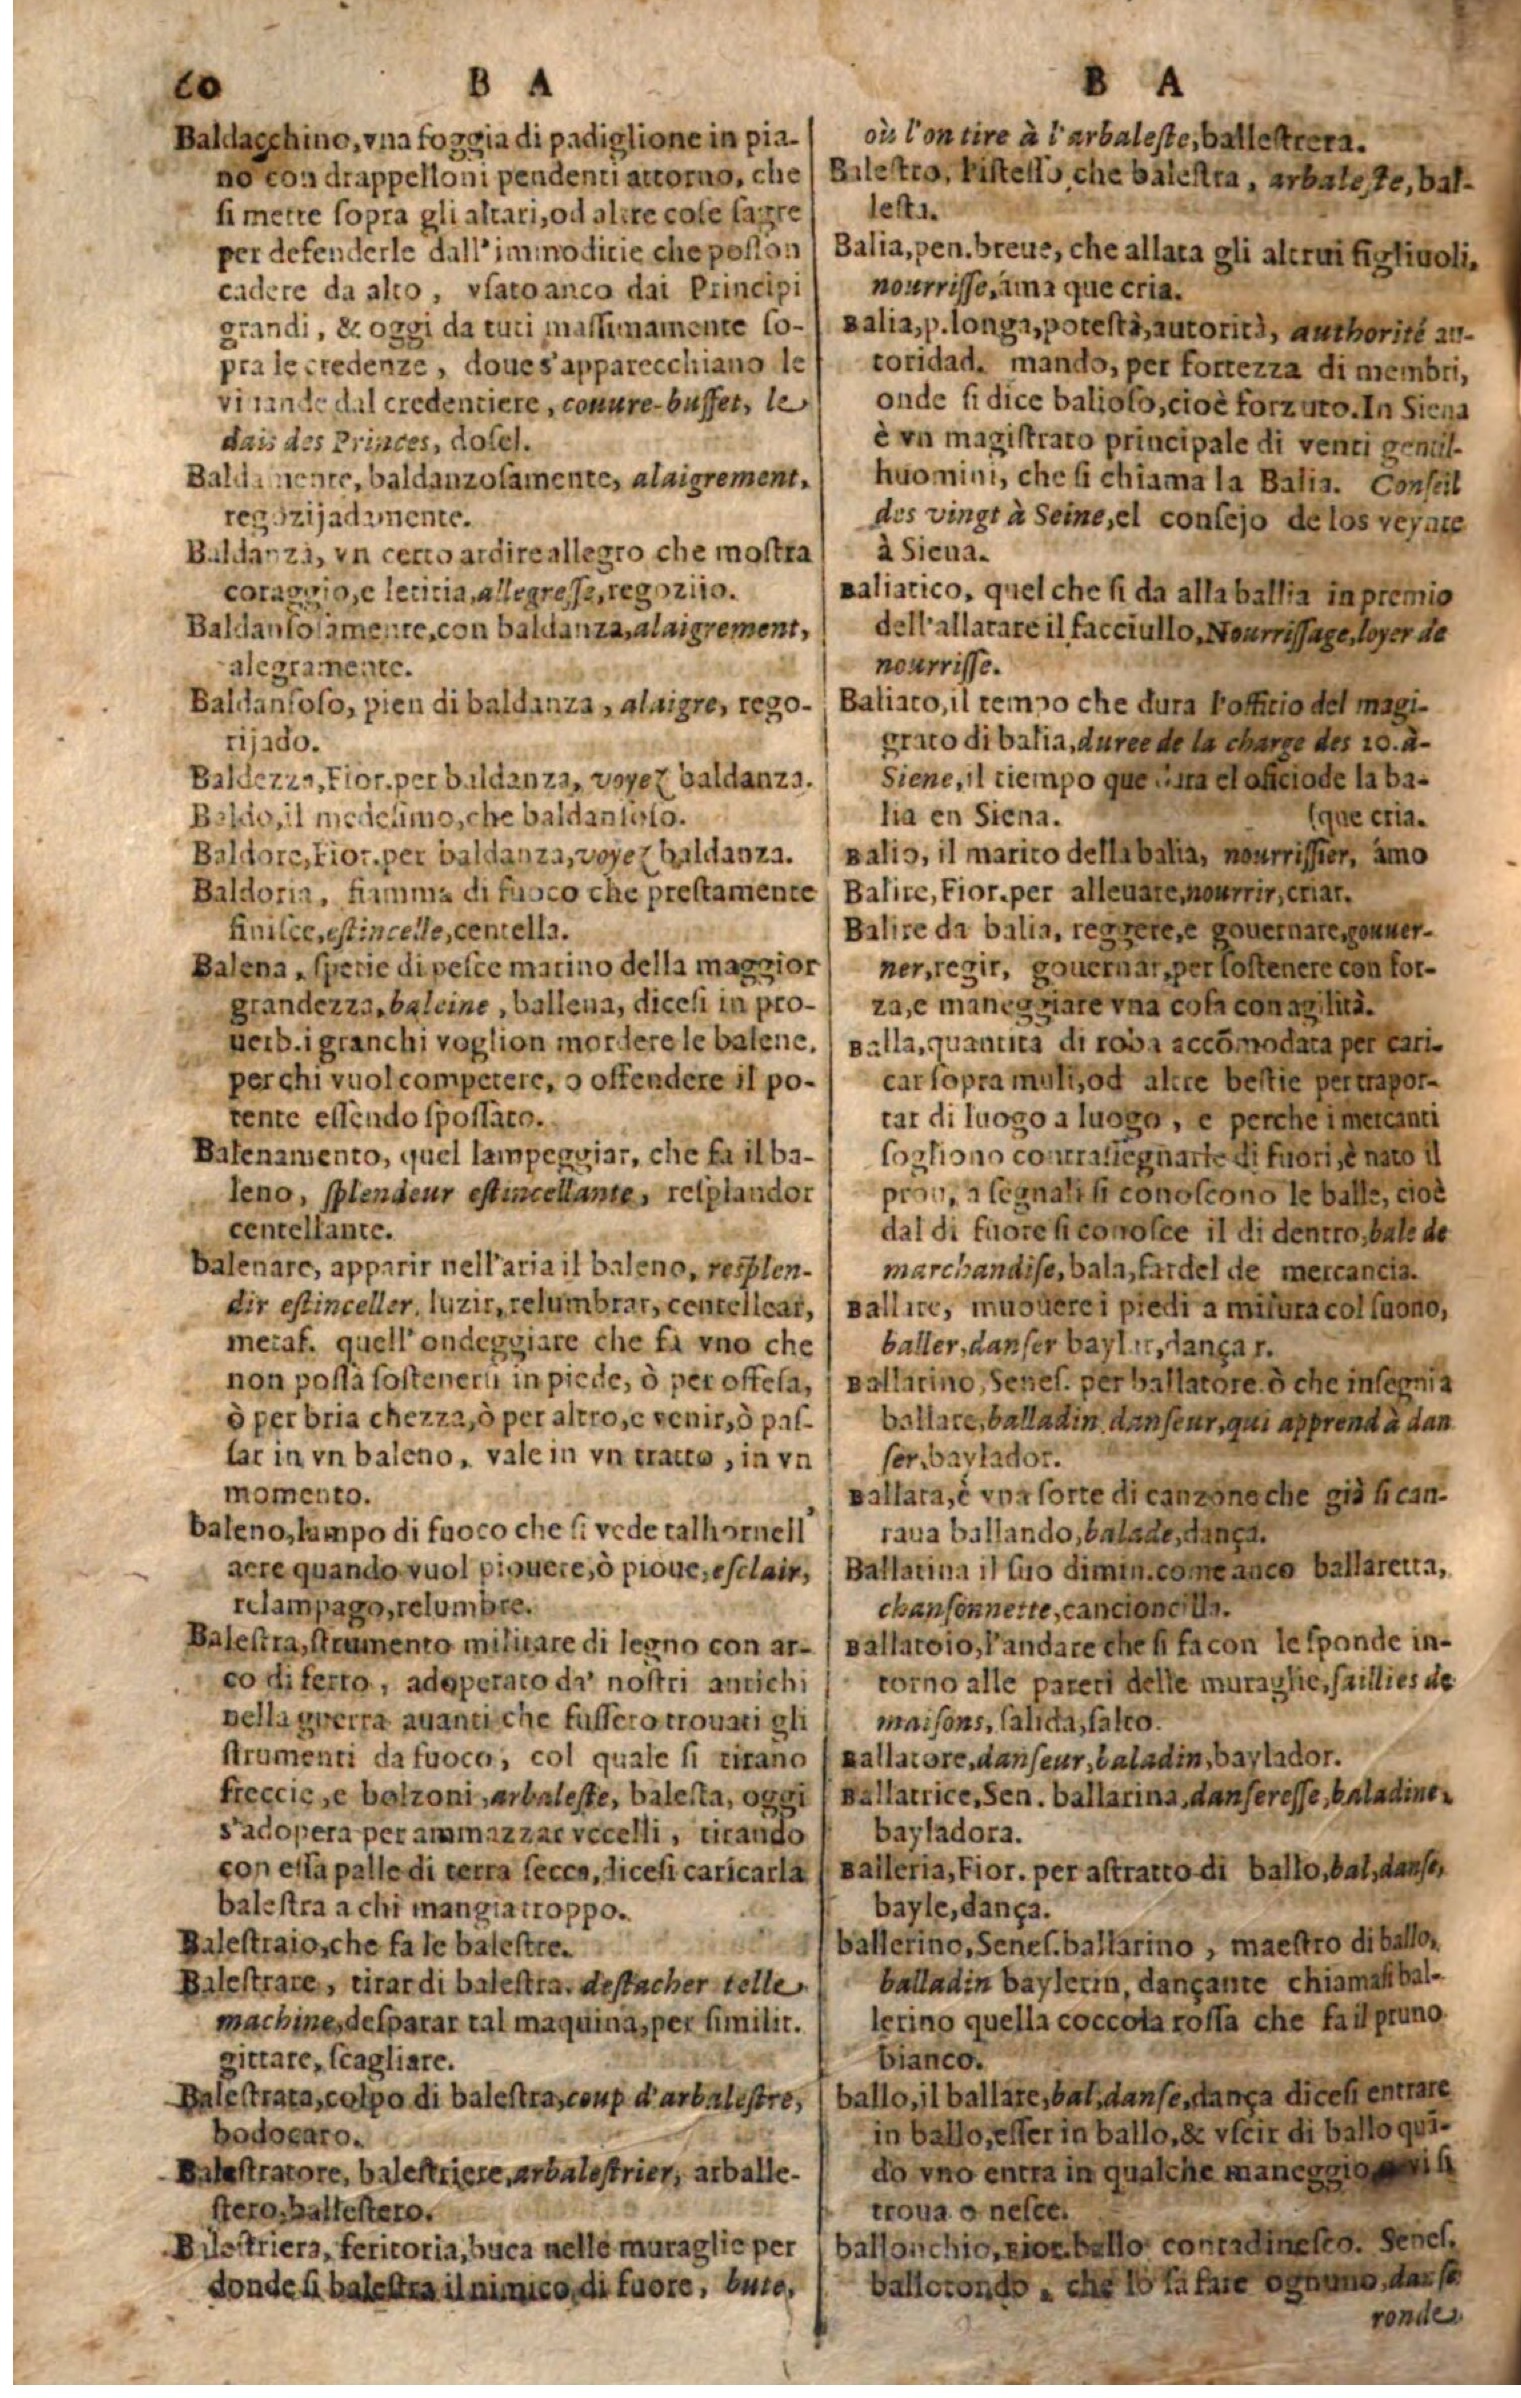 60 B A
Baldacchino, vna foggia di padiglione in pia-
no con drappelloni pendenti attorno, che
si mette sopra gli altari, od altre cose sagre
per defenderle dall'immodicie che posson
cadere da alto, vsato anco dai Principi
grandi, & oggi da tuti massimamente so-
pra le credenze, doue s'apparecchiano le
viuande dal credentiere, couure-buffet, le
dais des Princes, dosel.
Baldamente, baldanzosamente, alaigrement,
regozijadamente.
Baldanza, vn certo ardire allegro che mostra
coraggio, e letitia, allegresse, regozijo.
Baldansosamente, con baldanza, alaigrement,
alegramente.
Baldansoso, pien di baldanza, alaigre, rego-
rijado.
Baldezza, Fior. per baldanza, voyez baldanza.
Baldo, il medesimo, che baldansoso.
Baldore, Fior. per baldanza, voyez baldanza.
Baldoria, fiamma di fuoco che prestamente
finisce, estincelle, centella.
Balena, spetie di pesce marino della maggior
grandezza, baleine, ballena, dicesi in pro-
uerb. i granchi voglion mordere le balene,
per chi vuol competere, o offendere il po-
tente essendo spossato.
Balenamento, quel lampeggiar, che fa il ba-
leno, splendeur estincellante, resplandor
centellante.
balenare, apparir nell'aria il baleno, resplen-
dir estinceller, luzir, relumbrar, centellear,
metaf. quell'ondeggiare che fa vno che
non possa sostenersi in piede, ò per offesa,
ò per bria chezza, ò per altro, e venir, ò pas-
sar in vn baleno, vale in vn tratto, in vn
momento.
baleno, lampo di fuoco che si vede talhor nell'
aere quando vuol piouere, ò pioue, esclair,
relampago, relumbre.
Balestra, strumento militare di legno con ar-
co di ferro, adoperato da' nostri antichi
nella guerra auanti che fussero trouati gli
strumenti da fuoco, col quale si tirano
freccie, e bolzoni, arbaleste, balesta, oggi
s'adopera per ammazzar vccelli, tirando
con essa palle di terra secca, dicesi caricarla
balestra a chi mangia troppo.
Balestraio, che fa le balestre.
Balestrare, tirar di balestra, destacher telle
machine, desparar tal maquina, per similit.
gittare, scagliare.
Balestrata, colpo di balestra, coup d'arbalestre,
bodocaro.
Balestratore, balestriere, arbalestrier, arballe-
stero, ballestero.
Balestriera, feritoria, buca nelle muraglie per
donde si balestra il nimico, di fuore, bute,
B A
où l'on tire à l'arbaleste, ballestrera.
Balestro, l'istesso che balestra, arbaleste, bal-
lesta.
Balia, pen. breue, che allata gli altrui figliuoli,
nourrisse, ama que cria.
Balia, p. longa, potestà, autorità, authorité au-
toridad. mando, per fortezza di membri,
onde si dice balioso, cioè forzuto. In Siena
è vn magistrato principale di venti gentil-
huomini, che si chiama la Balia. Conseil
des vingt à Seine, el consejo de los veynte
à Siena.
Baliatico, quel che si da alla ballia in premio
dell'allatare il facciullo, Nourrissage, loyer de
nourrisse.
Baliato, il tempo che dura l'offitio del magi-
grato di balia, duree de la charge des 20. à
Siene, il tiempo que dura el oficiode la ba-
lia en Siena.
Balio, il marito della balia, nourrissier, amo
(que cria.
Balire, Fior. per alleuare, nourrir, criar.
Balire da balia, reggere, e gouernare, gouuer-
ner, regir, gouernar, per sostenere con for-
za, e maneggiare vna cosa con agilità.
Balla, quantità di roba accõmodata per cari-
car sopra muli, od altre bestie per trapor-
tar di luogo a luogo, e perche i mercanti
sogliono contrasegnarle di fuori, è nato il
prou. a segnali si conoscono le balle, cioè
dal di fuore si conosce il di dentro, bale de
marchandise, bala, fardel de mercancia.
Ballare, muouere i piedi a misura col suono,
baller, danser baylar, dança r.
Ballarino, Senes. per ballatore ò che insegnia
ballare, balladin, danseur, qui apprend à dan
ser, baylador.
Ballata, è vna sorte di canzone che già si can-
taua ballando, balade, dança.
Ballatina il suo dimin. come anco ballatetta,
chansonnette, cancioncilla.
Ballatoio, l'andare che si fa con le sponde in-
torno alle pareti delle muraglie, saillies de
maisons, salida, salto.
Ballatore, danseur, baladin, baylador.
Ballatrice, Sen. ballarina, danseresse, baladine,
bayladora.
Balleria, Fior. per astratto di ballo, bal, danse,
bayle, dança.
ballerino, Senes. ballarino, maestro di ballo,
balladin baylerin, dançante chiamasi bal-
lerino quella coccola rossa che fa il pruno
bianco.
ballo, il ballare, bal, danse, dança dicesi entrare
in ballo, esser in ballo, & vscir di ballo quã-
do vno entra in qualche maneggio vi si
troua o nesce.
ballonchio, Fior. ballo contadinesco. Senes.
ballotondo, che lo fa fare ognuno, danse
ronde